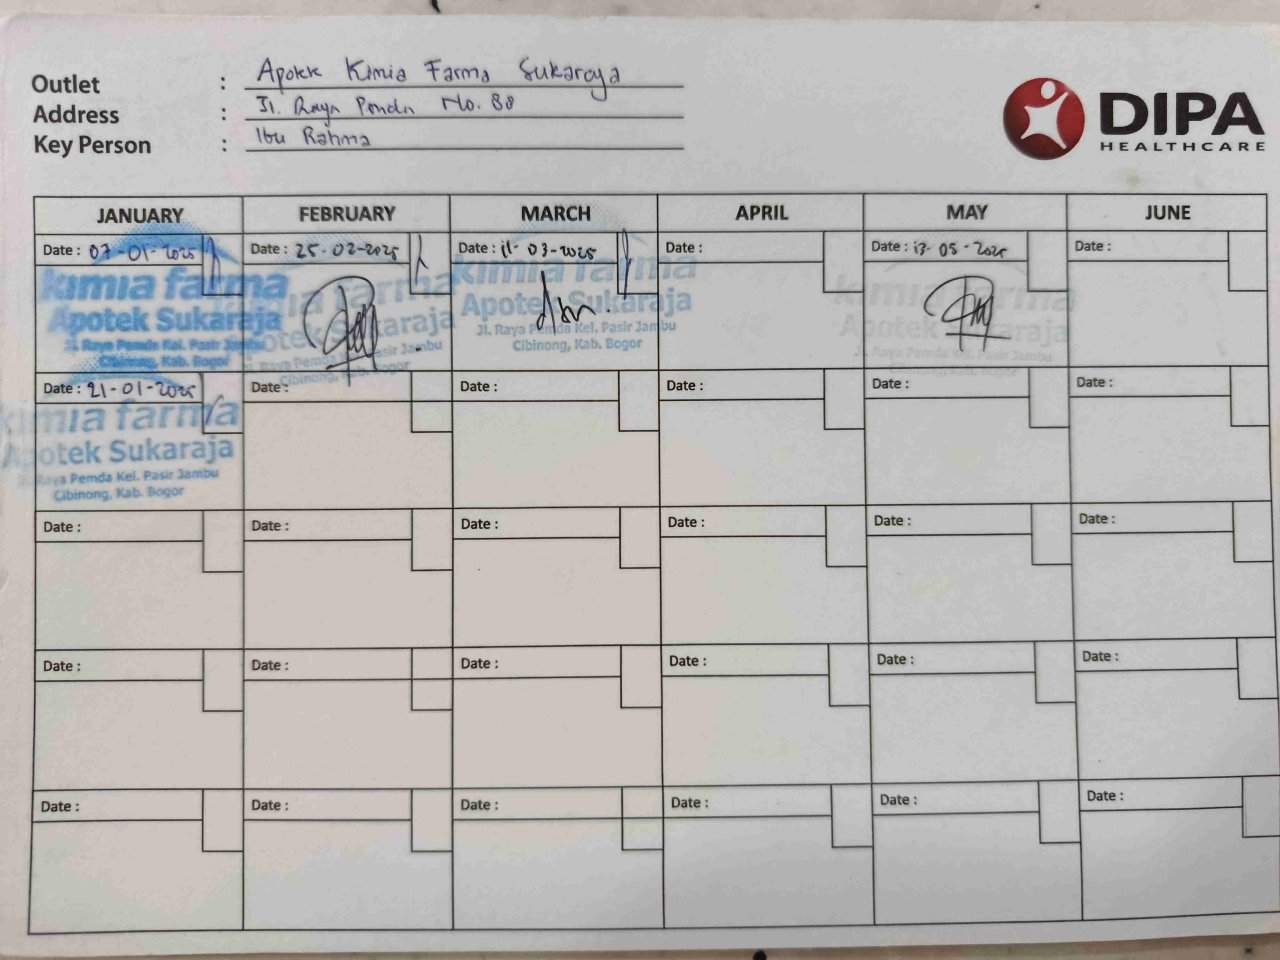 Outlet : Apotek Kimia Farma Sukaraja
Address : Jl. Raya Pemda No. 88
Key Person : Ibu Rahma
DIPA
HEALTHCARE
JANUARY FEBRUARY MARCH APRIL MAY JUNE
Date : 07-01-2025 Date : 25-02-2025 Date : 11-03-2025 Date : Date : 13-05-2025 Date :
kimia farma kimia farma kimia farma kimia farma
Apotek Sukaraja Apotek Sukaraja Apotek Sukaraja Apotek Sukaraja
Jl. Raya Pemda Kel. Pasir Jambu Raya Pemda Kel. Pasir Jambu Jl. Raya Pemda Kel. Pasir Jambu
Cibinong, Kab. Bogor Cibinong, Kab. Bogor Cibinong, Kab. Bogor
Date : 21-01-2025 Date : Date : Date : Date : Date :
kimia farma
Apotek Sukaraja
Jl. Raya Pemda Kel. Pasir Jambu
Cibinong, Kab. Bogor
Date : Date : Date : Date : Date : Date :
Date : Date : Date : Date : Date : Date :
Date : Date : Date : Date : Date : Date :